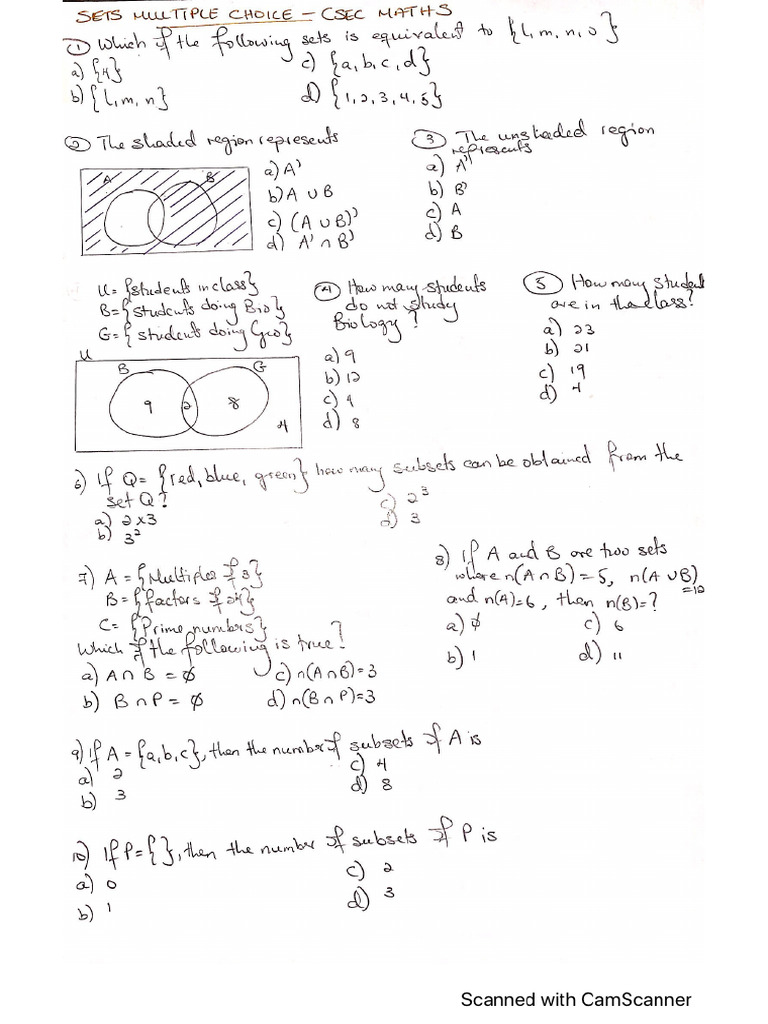 SETS MULTIPLE CHOICE – CSEC MATHS
① Which of the following sets is equivalent to {l, m, n, o}
a) {4}
b) {l, m, n}
c) {a, b, c, d}
d) {1, 2, 3, 4, 5}
② The shaded region represents
A B
a) A'
b) A ∪ B
c) (A ∪ B)'
d) A' ∩ B'
③ The unshaded region
represents
a) A'
b) B'
c) A
d) B
U = {students in class}
B = {students doing Bio}
G = {students doing Geo}
U
B G
9 2 8
4
④ How many students
do not study
Biology?
a) 9
b) 12
c) 4
d) 8
⑤ How many student
are in the class?
a) 23
b) 21
c) 19
d) 4
6) If Q = {red, blue, green} how many subsets can be obtained from the
set Q?
a) 2 x 3
b) 3²
c) 2³
d) 3
7) A = {Multiples of 3}
B = {factors of 24}
C = {Prime numbers}
Which of the following is true?
a) A ∩ B = ∅
b) B ∩ P = ∅
c) n(A ∩ B) = 3
d) n(B ∩ P) = 3
8) If A and B are two sets
where n(A ∩ B) = 5, n(A ∪ B)
= 12
and n(A) = 6, then n(B) = ?
a) ∅
b) 1
c) 6
d) 11
9) If A = {a, b, c}, then the number of subsets of A is
a) 2
b) 3
c) 4
d) 8
10) If P = { }, then the number of subsets of P is
a) 0
b) 1
c) 2
d) 3
Scanned with CamScanner